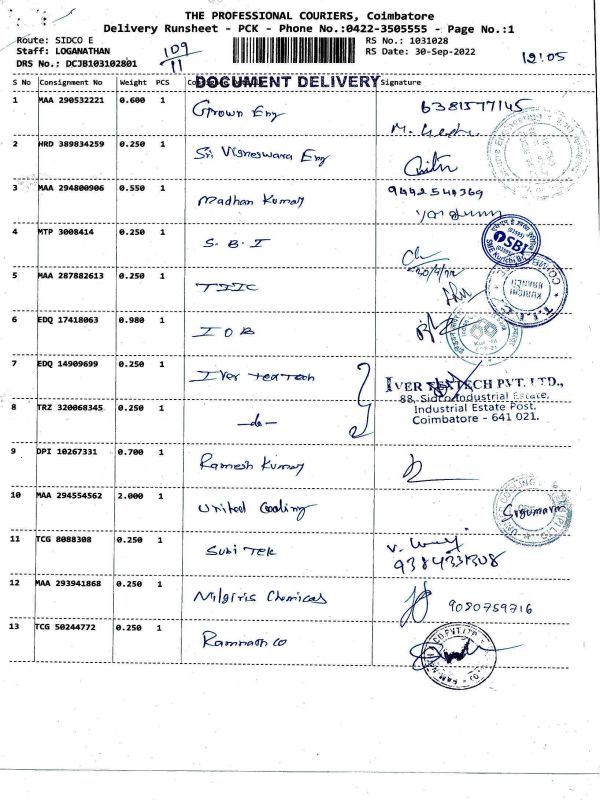 THE PROFESSIONAL COURIERS, Coimbatore
Delivery Runsheet - PCK - Phone No.:0422-3505555 - Page No.:1
Route: SIDCO E
Staff: LOGANATHAN
DRS No.: DCJB103102801
109
11
RS No.: 1031028
RS Date: 30-Sep-2022
12:05
DOCUMENT DELIVERY
S No Consignment No Weight PCS Signature
1 MAA 290532221 0.600 1 Grown Eng 6381577145
2 HRD 389834259 0.250 1 Sri Vigneswara Eng
3 MAA 294800906 0.550 1 Madhan Kumar 9442544369
4 MTP 3008414 0.250 1 S.B.I
SBI
5 MAA 287882613 0.250 1 TIIC
KURICHI
BRANCH
T.I.I.C
6 EDQ 17418063 0.980 1 IOB
7 EDQ 14909699 0.250 1 Iver Textech
IVER TEXTECH PVT. LTD.,
88, Sidco Industrial Estate,
Industrial Estate Post,
Coimbatore - 641 021.
8 TRZ 320068345 0.250 1 -do-
9 DPI 10267331 0.700 1 Ramesh Kumar
10 MAA 294554562 2.000 1 United Cooling
11 TCG 8088308 0.250 1 Subi Tek
12 MAA 293941868 0.250 1 Nilgiris Chemicals 9080759716
13 TCG 50244772 0.250 1 Ramnath co